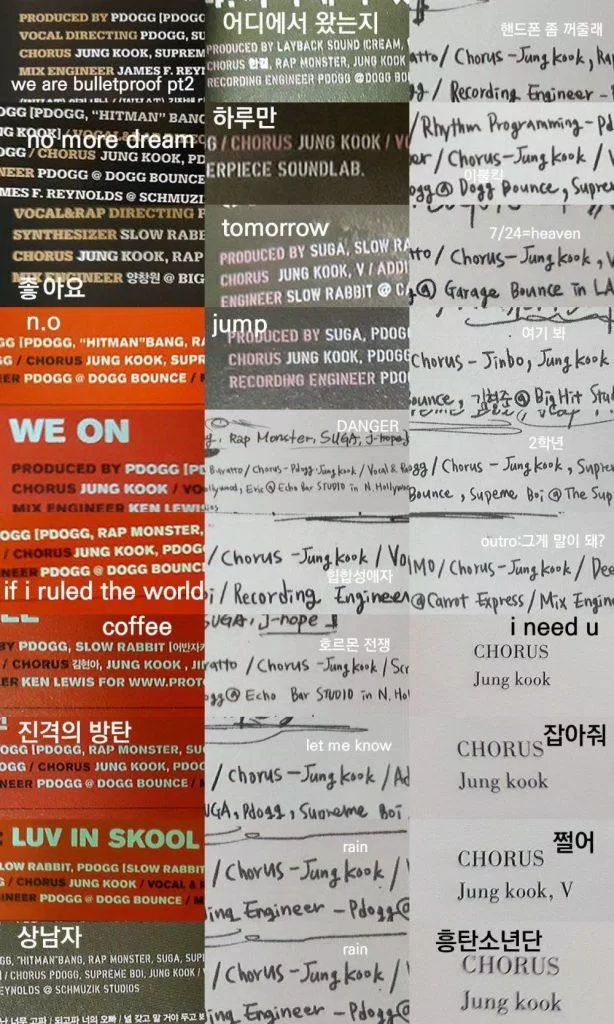 PRODUCED BY PDOGG [PDOGG
VOCAL DIRECTING PDOGG,
CHORUS JUNG KOOK, SUPREM
MIX ENGINEER JAMES F. REY
we are bulletproof pt2
OGG [PDOGG, "HITMAN" BANG,
no more dream
GG / CHORUS JUNG KOOK, PD
NEER PDOGG @ DOGG BOUNCE
MES F. REYNOLDS @ SCHMUZI
VOCAL&RAP DIRECTING
SYNTHESIZER SLOW RABB
CHORUS JUNG KOOK, RAP
MIX ENGINEER 양창원 @ BIG
좋아요
n.o
[PDOGG, "HITMAN"BANG, RA
GG / CHORUS JUNG KOOK, SUPR
EER PDOGG @ DOGG BOUNCE / M
WE ON
PRODUCED BY PDOGG [PD
CHORUS JUNG KOOK / VO
MIX ENGINEER KEN LEWIS
OGG [PDOGG, RAP MONSTER,
/ CHORUS JUNG KOOK, PDOG
NEER PDOGG @ DOGG BOUNC
if i ruled the world
coffee
BY PDOGG, SLOW RABBIT [어반자카
/ CHORUS 김현아, JUNG KOOK , JI
ER KEN LEWIS FOR WWW.PROTO
진격의 방탄
OGG [PDOGG, RAP MONSTER, SU
/ CHORUS JUNG KOOK, PDOGG,
NEER PDOGG @ DOGG BOUNCE /
: LUV IN SKOOL
SLOW RABBIT, PDOGG [SLOW RABBIT
G / CHORUS JUNG KOOK / VOCAL & R
INEER PDOGG @ DOGG BOUNCE /
상남자
GG, "HITMAN"BANG, RAP MONSTER, SUGA, SUP
] / CHORUS PDOGG, SUPREME BOI, JUNG KOOK / V
EYNOLDS @ SCHMUZIK STUDIOS
난 너무 고파 / 되고파 너의 오빠 / 널 갖고 말 거야 두고 봐
어디에서 왔는지
PRODUCED BY LAYBACK SOUND [CREAM,
CHORUS 한길, RAP MONSTER, JUNG KOOK
RECORDING ENGINEER PDOGG @DOGG BO
하루만
G / CHORUS JUNG KOOK / VO
ERPIECE SOUNDLAB.
tomorrow
PRODUCED BY SUGA, SLOW RA
CHORUS JUNG KOOK, V / ADDI
ENGINEER SLOW RABBIT @ CA
jump
PRODUCED BY SUGA, PDOGG
CHORUS JUNG KOOK, PDOGG
RECORDING ENGINEER PDO
DANGER
Rap Monster, SUGA, J-hope]
Buratto / Chorus - Pdogg, Jung kook / Vocal & Ra
ollywood, Eric @ Echo Bar STUDIO in N. Hollywoo
/ Chorus - Jung kook / Vo
힙합성애자
i / Recording Engineer
SUGA, J-hope]
호르몬 전쟁
ratto / Chorus - Jung kook / Scr
ogg @ Echo Bar STUDIO in N. Hol
let me know
/ Chorus - Jung kook / Ad
UGA, Pdogg, Supreme Boi
rain
/ Chorus - Jung kook /
ing Engineer - Pdogg@
rain
/ Chorus - Jung kook /
ing Engineer - Pdogg@
핸드폰 좀 꺼줄래
ratto / Chorus - Jung kook, Rap
gg / Recording Engineer - P
/ Rhythm Programming - Pd
er / Chorus - Jung kook / V
이불킥
ogg @ Dogg Bounce, Supre
7/24=heaven
tto / Chorus - Jung kook, V
@ Garage Bounce in LA
여기 봐
Chorus - Jinbo, Jung kook
ounce, 김형준 @ Big Hit Stud
2학년
gg / Chorus - Jung kook, Suprem
Bounce, Supeme Boi @ The Sup
outro:그게 말이 돼?
IMO / Chorus - Jung kook / Dee
@Carrot Express / Mix Engin
i need u
CHORUS
Jung kook
잡아줘
CHORUS
Jung kook
쩔어
CHORUS
Jung kook, V
흥탄소년단
CHORUS
Jung kook